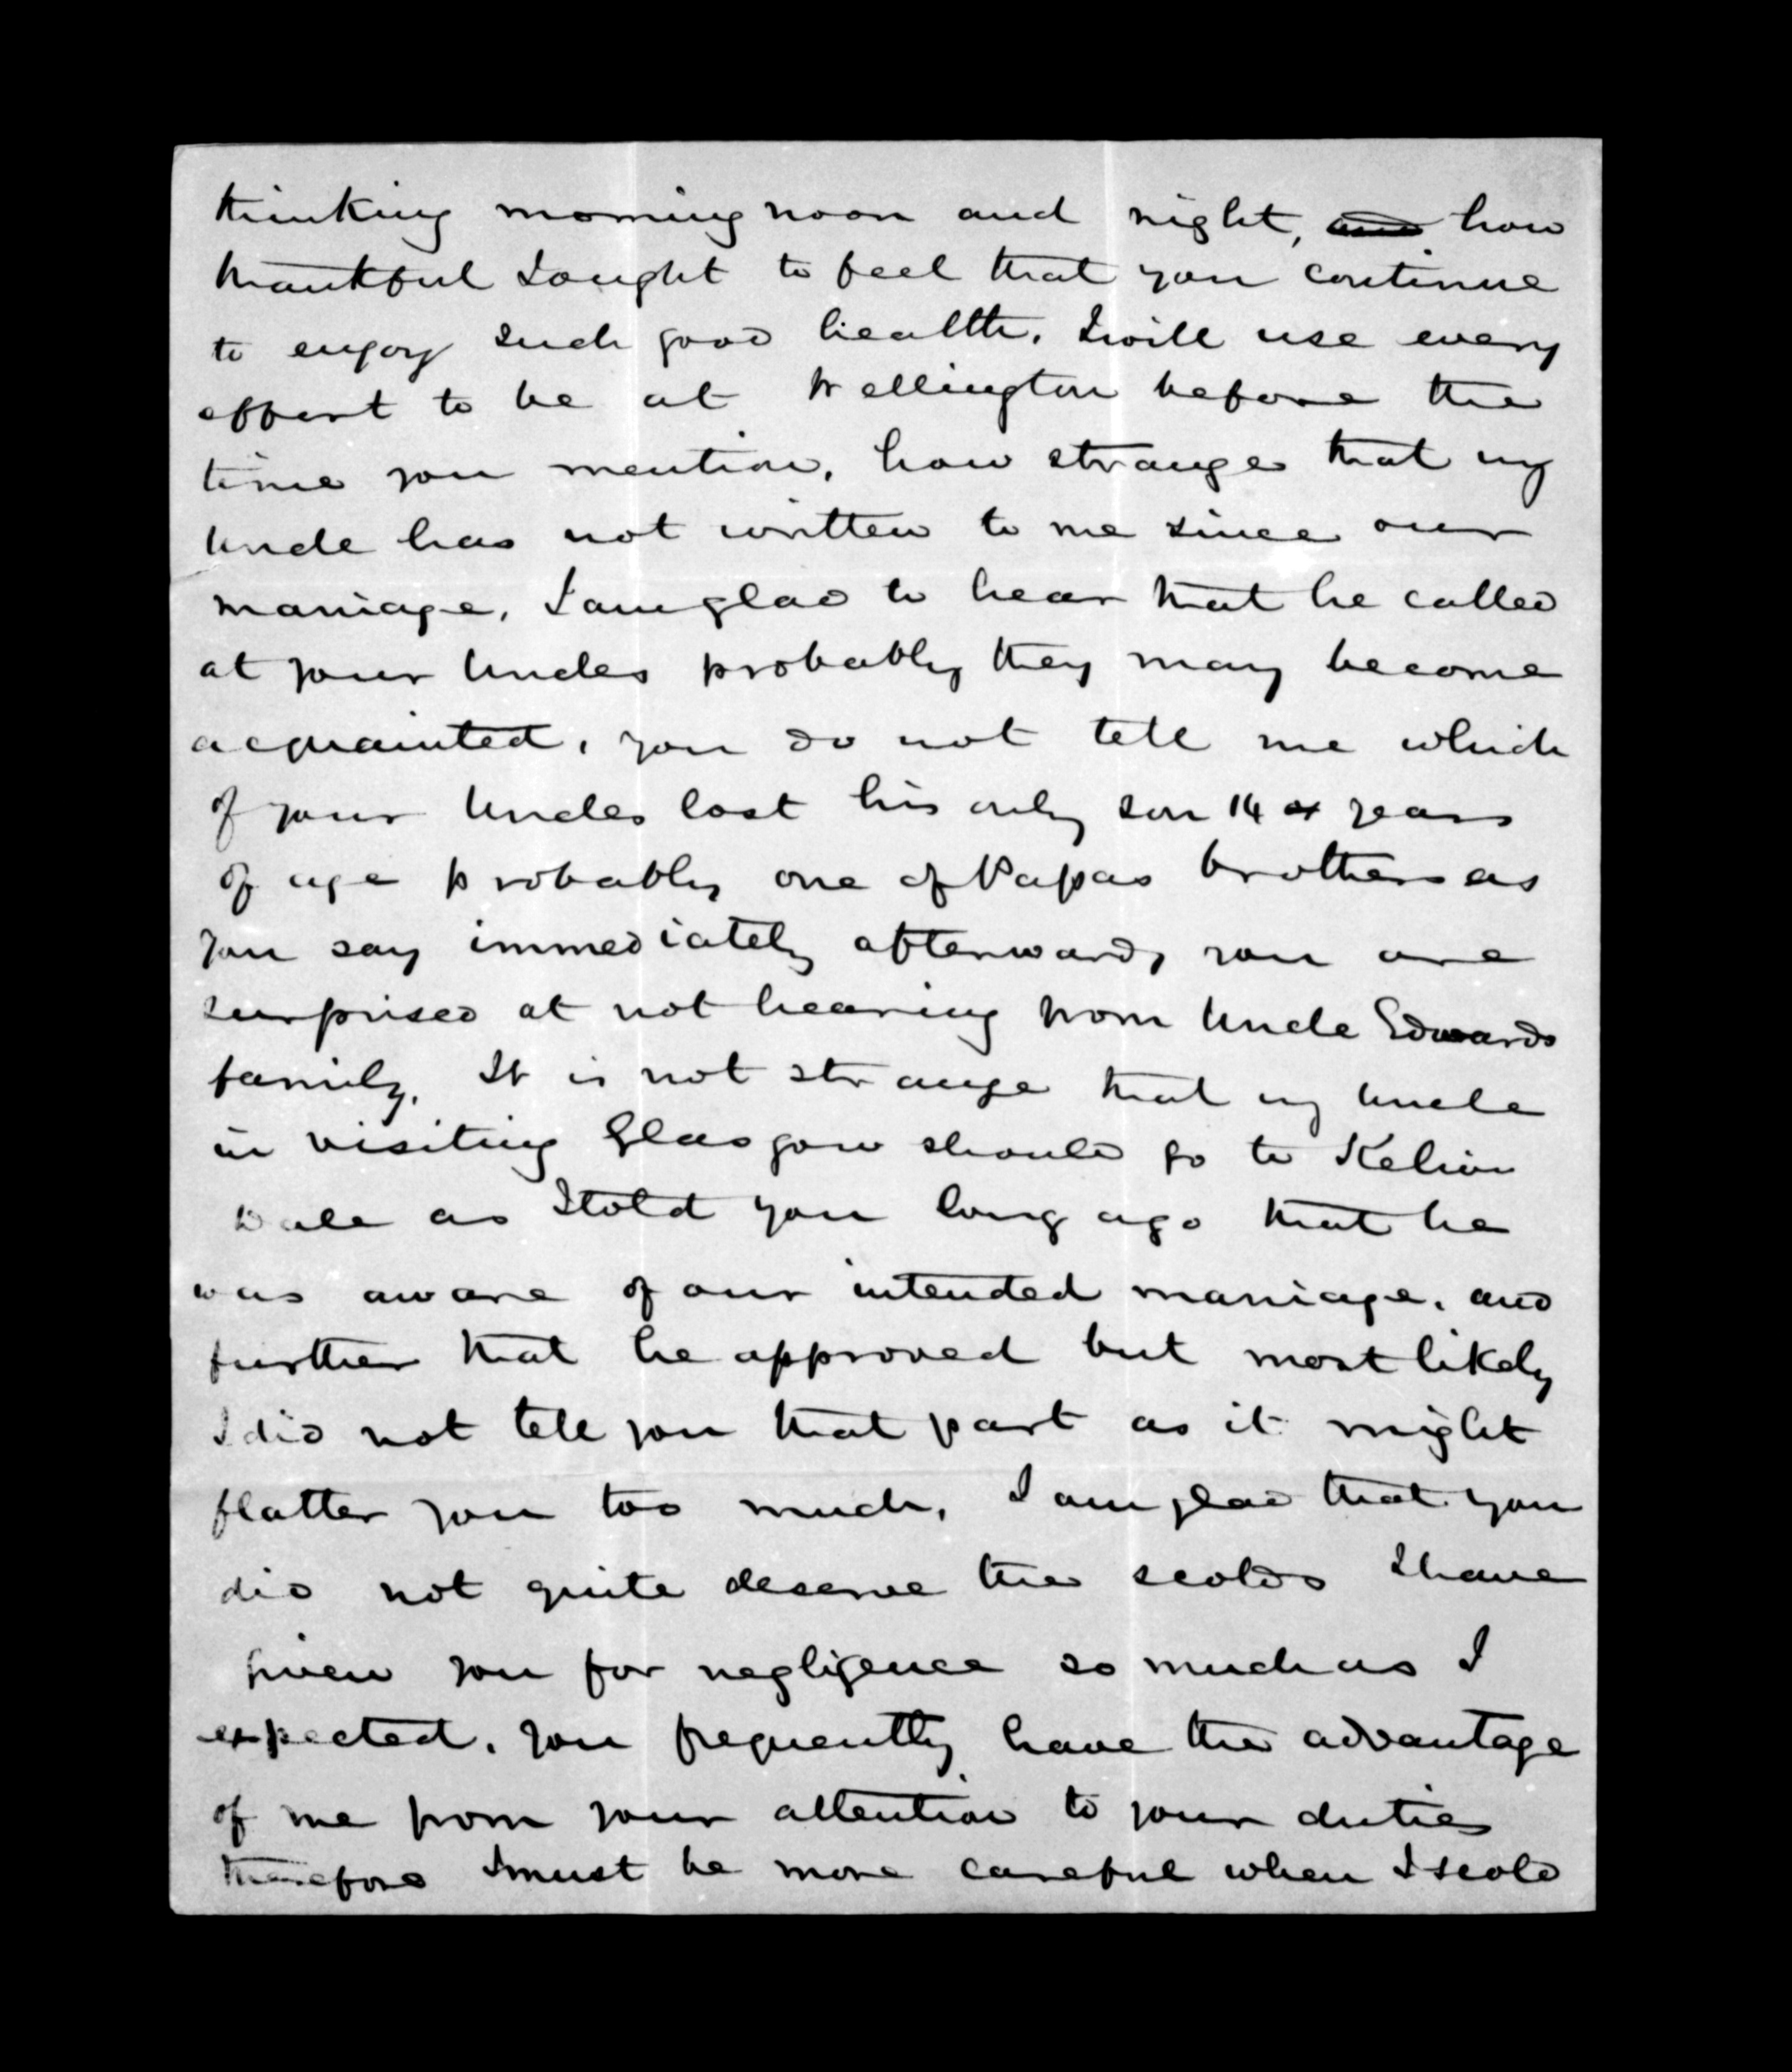 thinking morning noon and night, and how
thankful I ought to feel that you continue
to enjoy such good health. I will use every
effort to be at Wellington before the
time you mention, how strange that my
Uncle has not written to me since our
marriage, I am glad to hear that he called
at your Uncles probably they may become
acquainted, you do not tell me which
of your Uncles lost his only son 14 years
of age probably one of Papas brothers as
you say immediately afterwards you are
surprised at not hearing from Uncle Edwards
family. It is not strange that my Uncle
in visiting Glasgow should go to Kelvin
Dale as I told you long ago that he
was aware of our intended marriage, and
further that he approved but most likely
I did not tell you that part as it might
flatter you too much, I am glad that you
did not quite deserve the scolds I have
given you for negligence so much as I
expected, you frequently have the advantage
of me from your attention to your duties
therefore I must be more careful when I scold